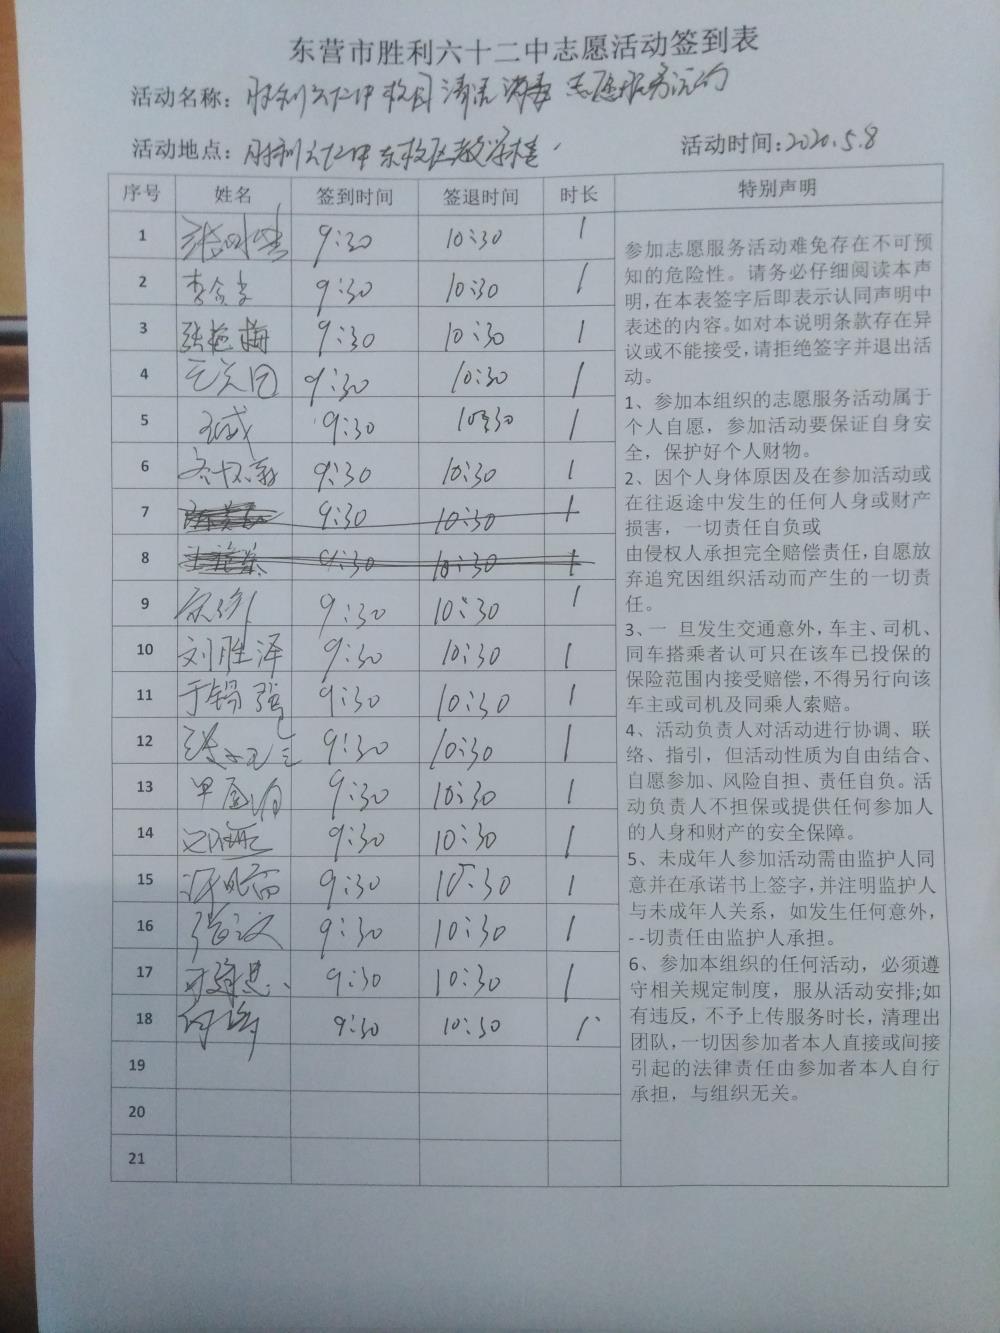 东营市胜利六十二中志愿活动签到表
活动名称：胜利六十二中校园清洁消毒志愿服务活动
活动地点：胜利六十二中东校区教学楼
活动时间：2020.5.8
序号 姓名 签到时间 签退时间 时长 特别声明
1 9:30 10:30 1
2 9:30 10:30 1
3 张艳梅 9:30 10:30 1
4 9:30 10:30 1
5 9:30 10:30 1
6 9:30 10:30 1
7 9:30 10:30 1
8 9:30 10:30 1
9 9:30 10:30 1
10 刘胜泽 9:30 10:30 1
11 于锡强 9:30 10:30 1
12 9:30 10:30 1
13 9:30 10:30 1
14 9:30 10:30 1
15 9:30 10:30 1
16 9:30 10:30 1
17 9:30 10:30 1
18 9:30 10:30 1
19
20
21
参加志愿服务活动难免存在不可预
知的危险性。请务必仔细阅读本声
明，在本表签字后即表示认同声明中
表述的内容。如对本说明条款存在异
议或不能接受，请拒绝签字并退出活
动。
1、参加本组织的志愿服务活动属于
个人自愿，参加活动要保证自身安
全，保护好个人财物。
2、因个人身体原因及在参加活动或
在往返途中发生的任何人身或财产
损害，一切责任自负或
由侵权人承担完全赔偿责任，自愿放
弃追究因组织活动而产生的一切责
任。
3、一 旦发生交通意外，车主、司机、
同车搭乘者认可只在该车已投保的
保险范围内接受赔偿，不得另行向该
车主或司机及同乘人索赔。
4、活动负责人对活动进行协调、联
络、指引，但活动性质为自由结合、
自愿参加、风险自担、责任自负。活
动负责人不担保或提供任何参加人
的人身和财产的安全保障。
5、未成年人参加活动需由监护人同
意并在承诺书上签字，并注明监护人
与未成年人关系，如发生任何意外，
--切责任由监护人承担。
6、参加本组织的任何活动，必须遵
守相关规定制度，服从活动安排;如
有违反，不予上传服务时长，清理出
团队，一切因参加者本人直接或间接
引起的法律责任由参加者本人自行
承担，与组织无关。